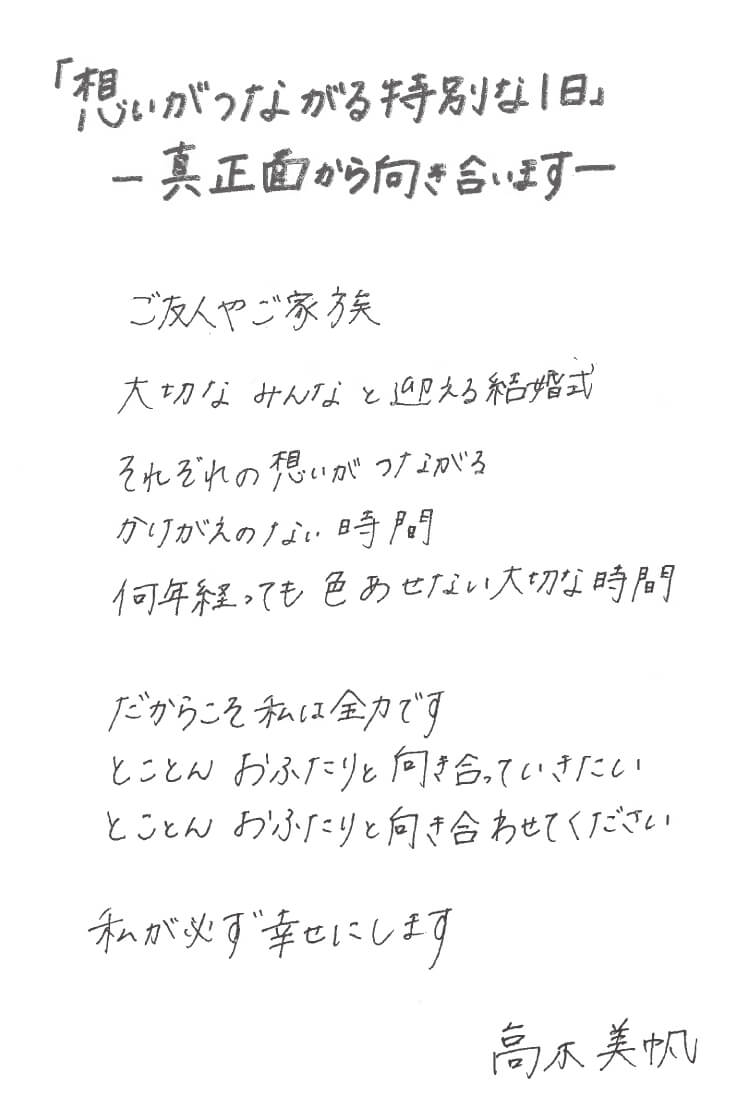 「想いがつながる特別な1日」
ー真正面から向き合いますー
ご友人やご家族
大切な みんなと迎える結婚式
それぞれの想いがつながる
かけがえのない時間
何年経っても 色あせない大切な時間
だからこそ私は全力です
とことん おふたりと向き合っていきたい
とことん おふたりと向き合わせてください
私が必ず幸せにします
高木美帆